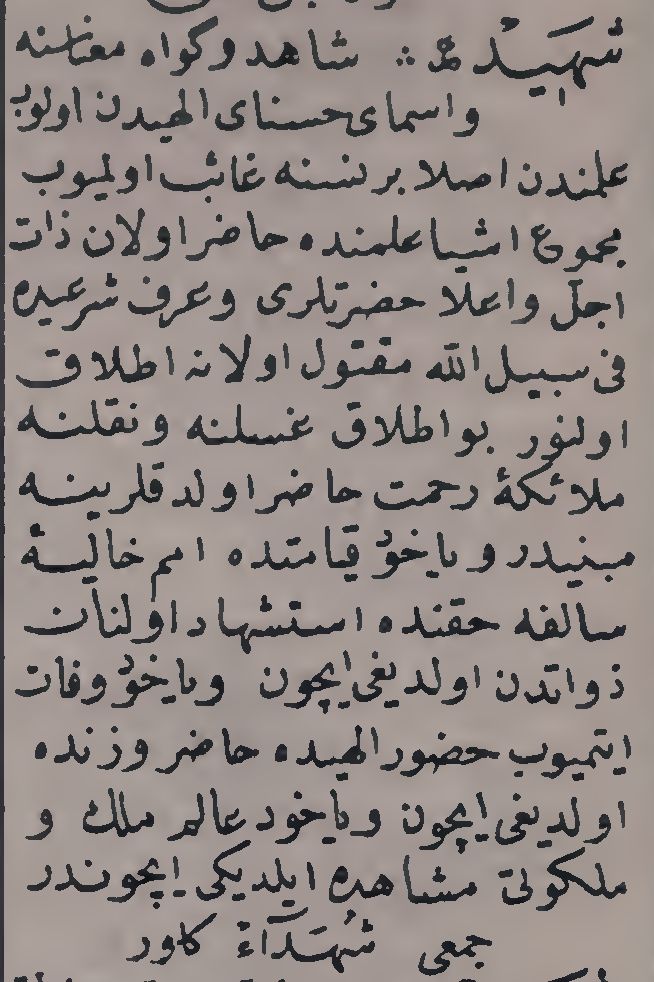 شَهِيدْ ع ∴ شاهد وكواه معناسنه
واسماى حسناى الهيدن اولوب
علمندن اصلا بر نسنه غائب اولميوب
مجموع اشيا علمنده حاضر اولان ذات
اجلّ واعلا حضرتلرى وعرف شرعيده
فى سبيل الله مقتول اولانه اطلاق
اولنور بو اطلاق غسلنه ونقلنه
ملائكۀ رحمت حاضر اولدقلرينه
مبنيدر وياخوْد قيامتده امم خاليۀ
سالفه حقنده استشهاد اولنان
ذواتدن اولديغى ايچون وياخوْد وفات
ايتميوب حضور الهيده حاضر وزنده
اولديغى ايچون وياخود عالم ملك و
ملكوتى مشاهده ايلديكى ايچوندر
جمعى شُهَدَآءْ كلور